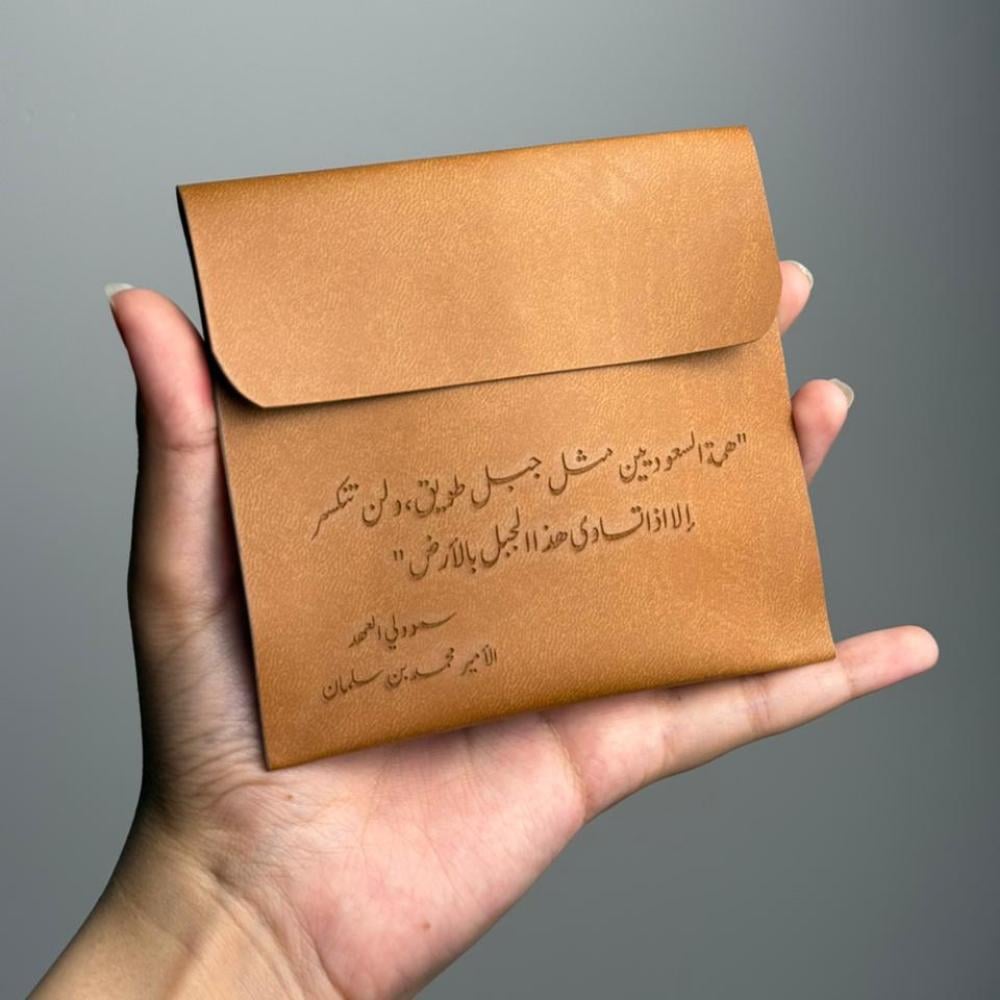 "همة السعوديين مثل جبل طويق، ولن تنكسر
إلا اذا تساوى هذا الجبل بالأرض"
سمو ولي العهد
الأمير محمد بن سلمان